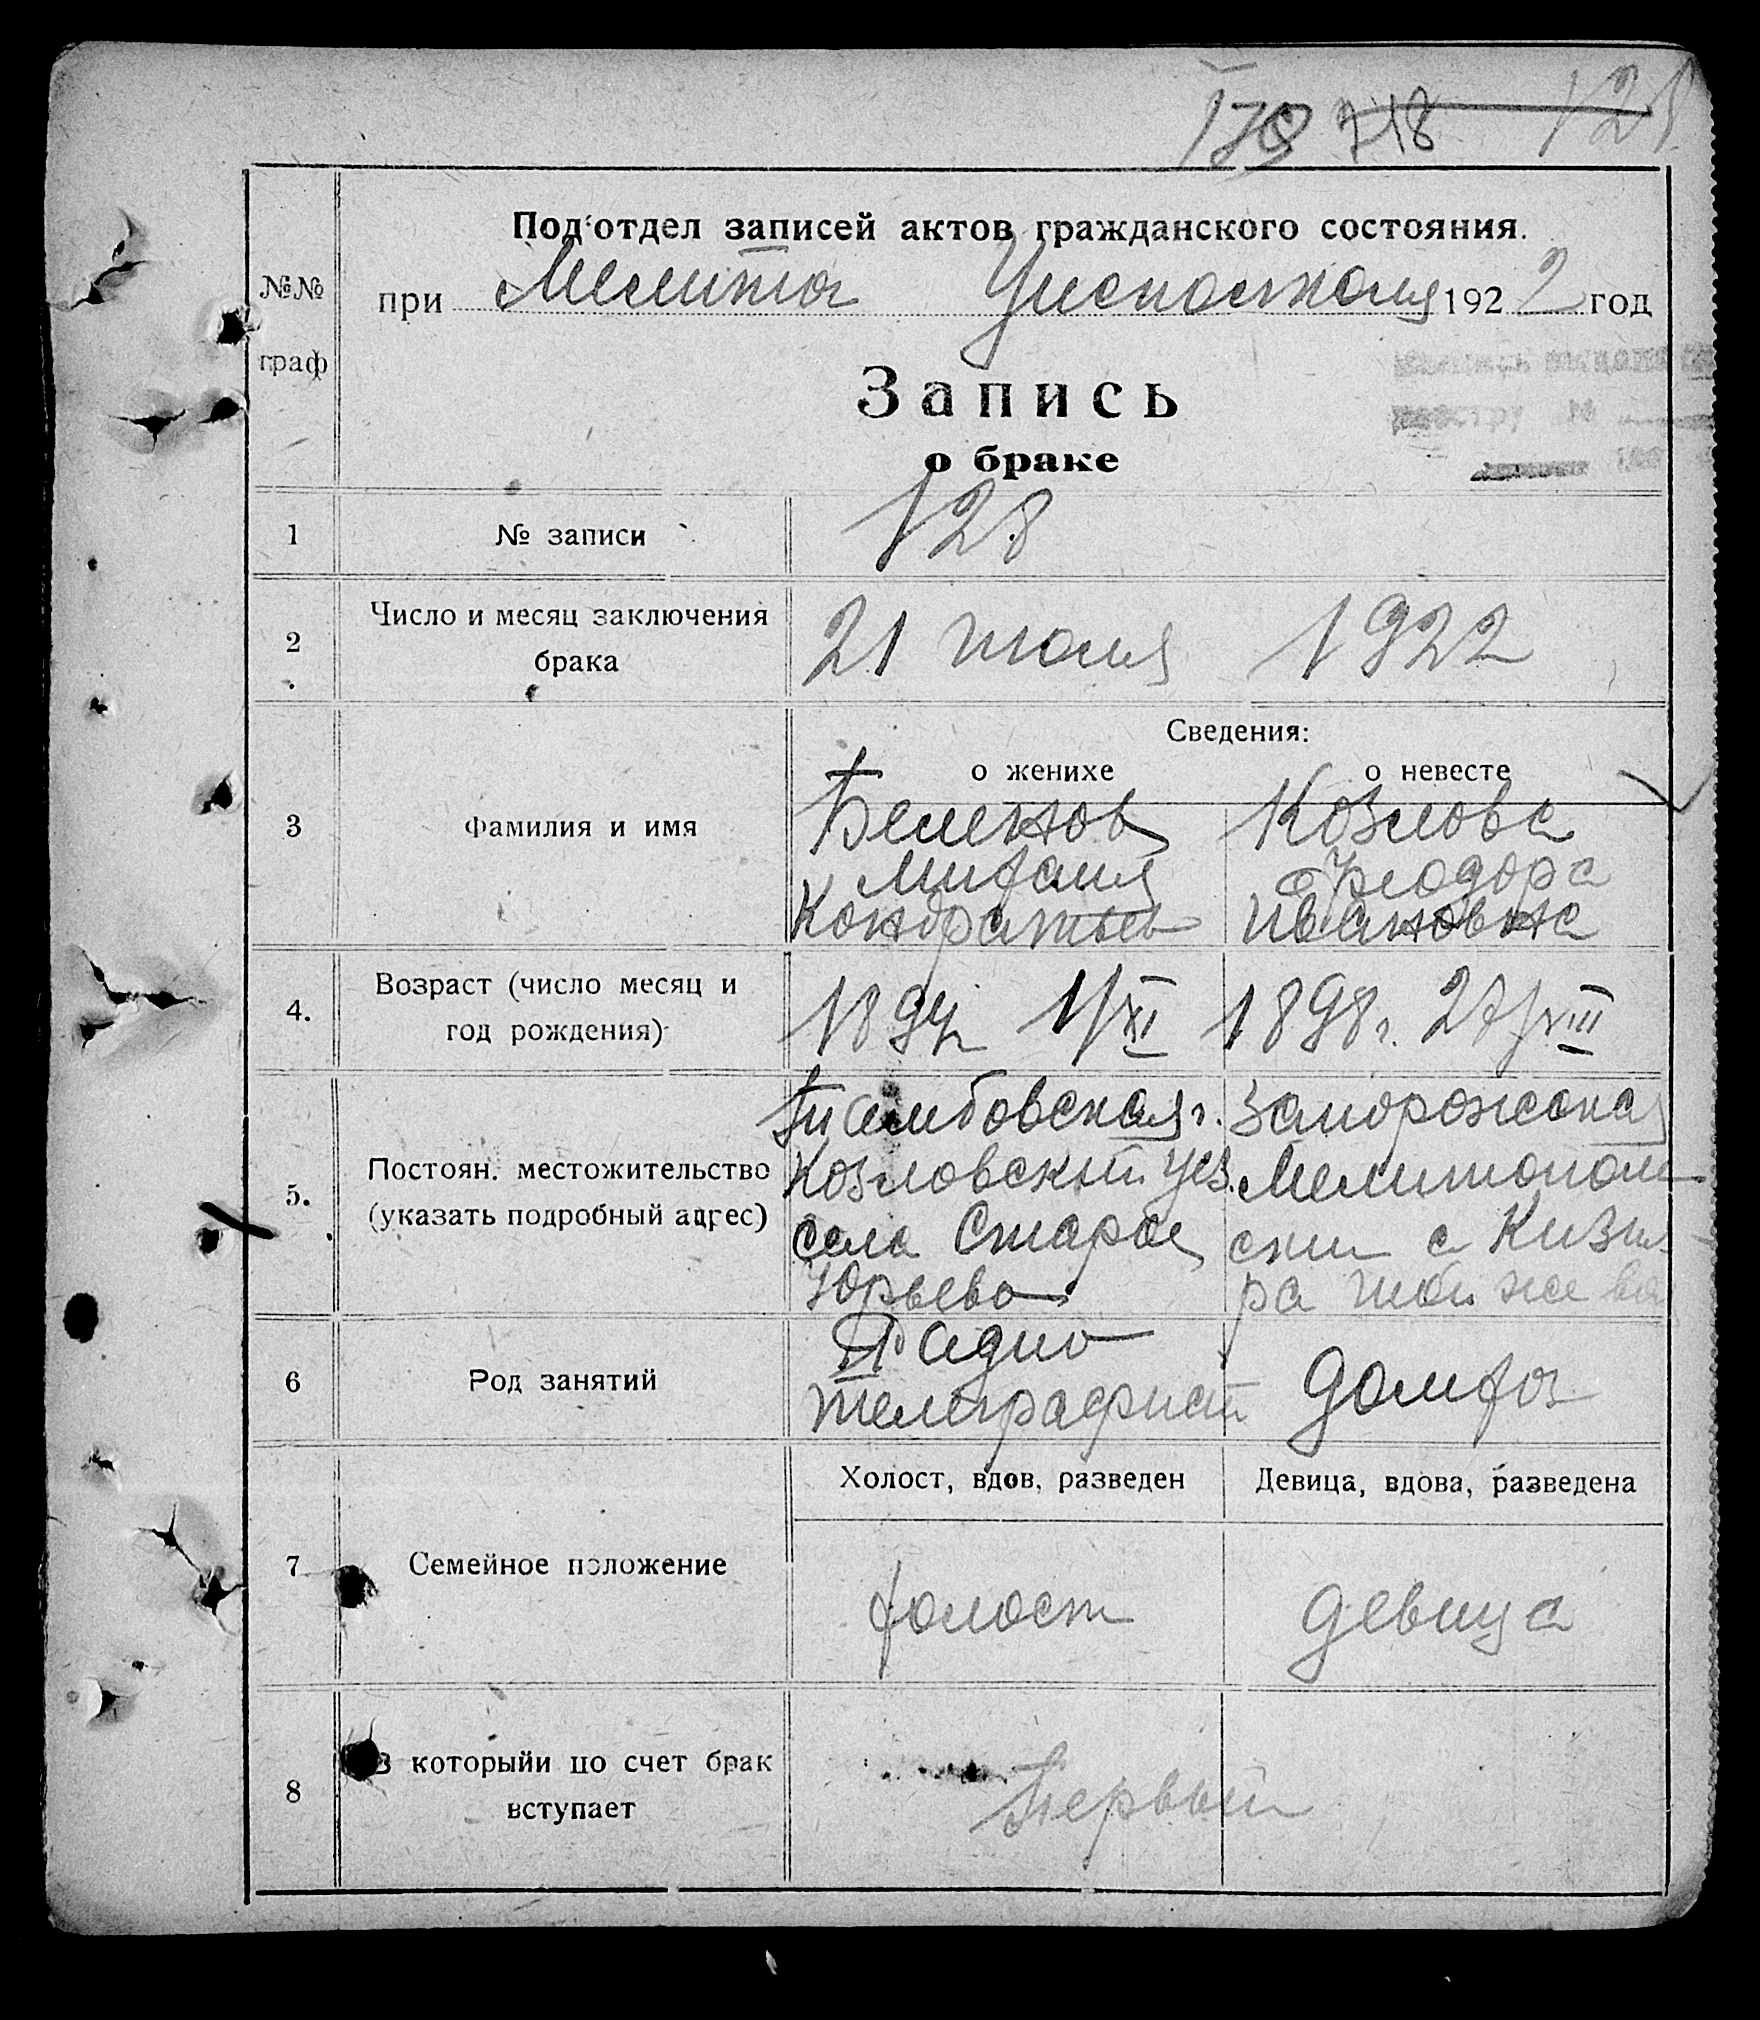 178 718 128
Под'отдел записей актов гражданского состояния.
№№
граф
при Мелитоп Уисполкоме 1922 год
Запись
о браке
1 № записи 128
2 Число и месяц заключения
брака
21 июля 1922
Сведения:
о женихе о невесте
3 Фамилия и имя
Беленов Козлова
Михаил Феодора
Кондратьев Ивановна
4. Возраст (число месяц и
год рождения)
1894 1/XI 1898 г. 27/VIII
5. Постоян. местожительство
(указать подробный адрес)
Тамбовская г. Запорожская
Козловский уез. Мелитополь
села Старое ский с Кизи
Юрьево ра той же во
6 Род занятий
Радио
телеграфист домхоз
7 Семейное положение
Холост, вдов, разведен Девица, вдова, разведена
холост девица
8 В которыйи по счет брак
вступает
Первый